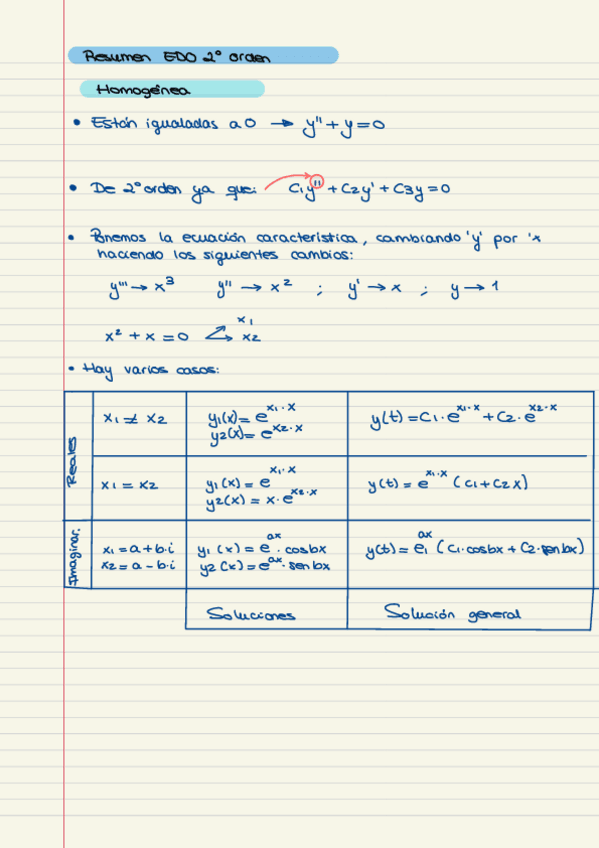 Resumen EDO 2º orden
Homogénea
• Están igualadas a 0 → y'' + y = 0
• De 2º orden ya que: C1y'' + C2y' + C3y = 0
• Ponemos la ecuación característica, cambiando 'y' por 'x
haciendo los siguientes cambios:
y''' → x³ y'' → x² ; y' → x ; y → 1
x² + x = 0 x1 x2
• Hay varios casos:
Reales
x1 ≠ x2
y1(x) = e^(x1·x)
y2(x) = e^(x2·x)
y(t) = C1·e^(x1·x) + C2·e^(x2·x)
x1 = x2
y1(x) = e^(x1·x)
y2(x) = x·e^(x2·x)
y(t) = e^(x1·x) (C1 + C2x)
Imaginar.
x1 = a + b·i
x2 = a - b·i
y1(x) = e^(ax)·cosbx
y2(x) = e^(ax)·senbx
y(t) = e^(ax) (C1·cosbx + C2·senbx)
Soluciones
Solución general